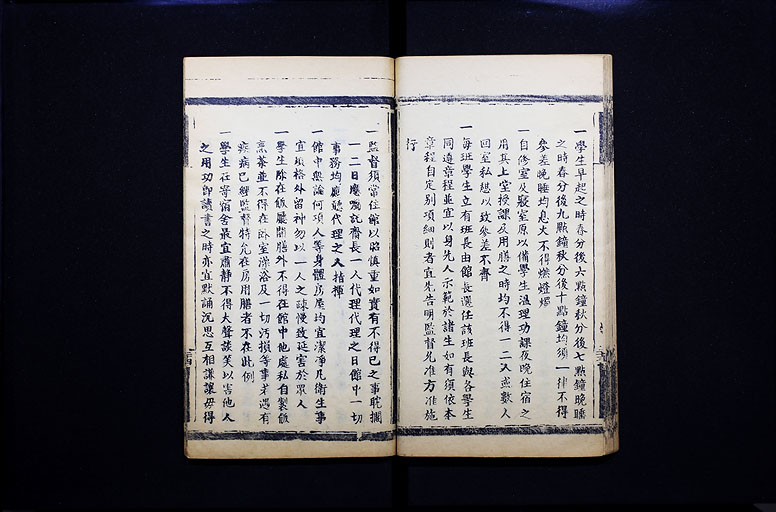 一學生早起之時春分後六點鐘秋分後七點鐘晚睡
之時春分後九點鐘秋分後十點鐘均須一律不得
參差晚睡均息火不得燃燈燭
一自修室及寢室原以備學生溫理功課夜晚住宿之
用其上堂授課及用膳之時均不得一二人或數人
回室私憩以致參差不齊
一每班學生立有班長由館長選任該班長與各學生
同遵章程並宜以身先人示範於諸生如有須依本
章程自定別項細則者宜先告明監督允准方准施
行
一監督須常住館以昭慎重如實有不得已之事耽擱
一二日應囑託齋長一人代理代理之日館中一切
事務均應聽代理之人指揮
一館中無論何項人等身體房屋均宜潔淨凡衛生事
宜須格外留神勿以一人之疎慢致延害於眾人
一學生除在飯廳開膳外不得在館中他處私自製飯
烹茶並不得在臥室澡浴及一切污損等事才遇有
疾病已經監督特允在房用膳者不在此例
一學生在寄宿舍最宜肅靜不得大聲談笑以害他人
之用功即讀書之時亦宜默誦沉思互相謙讓毋得